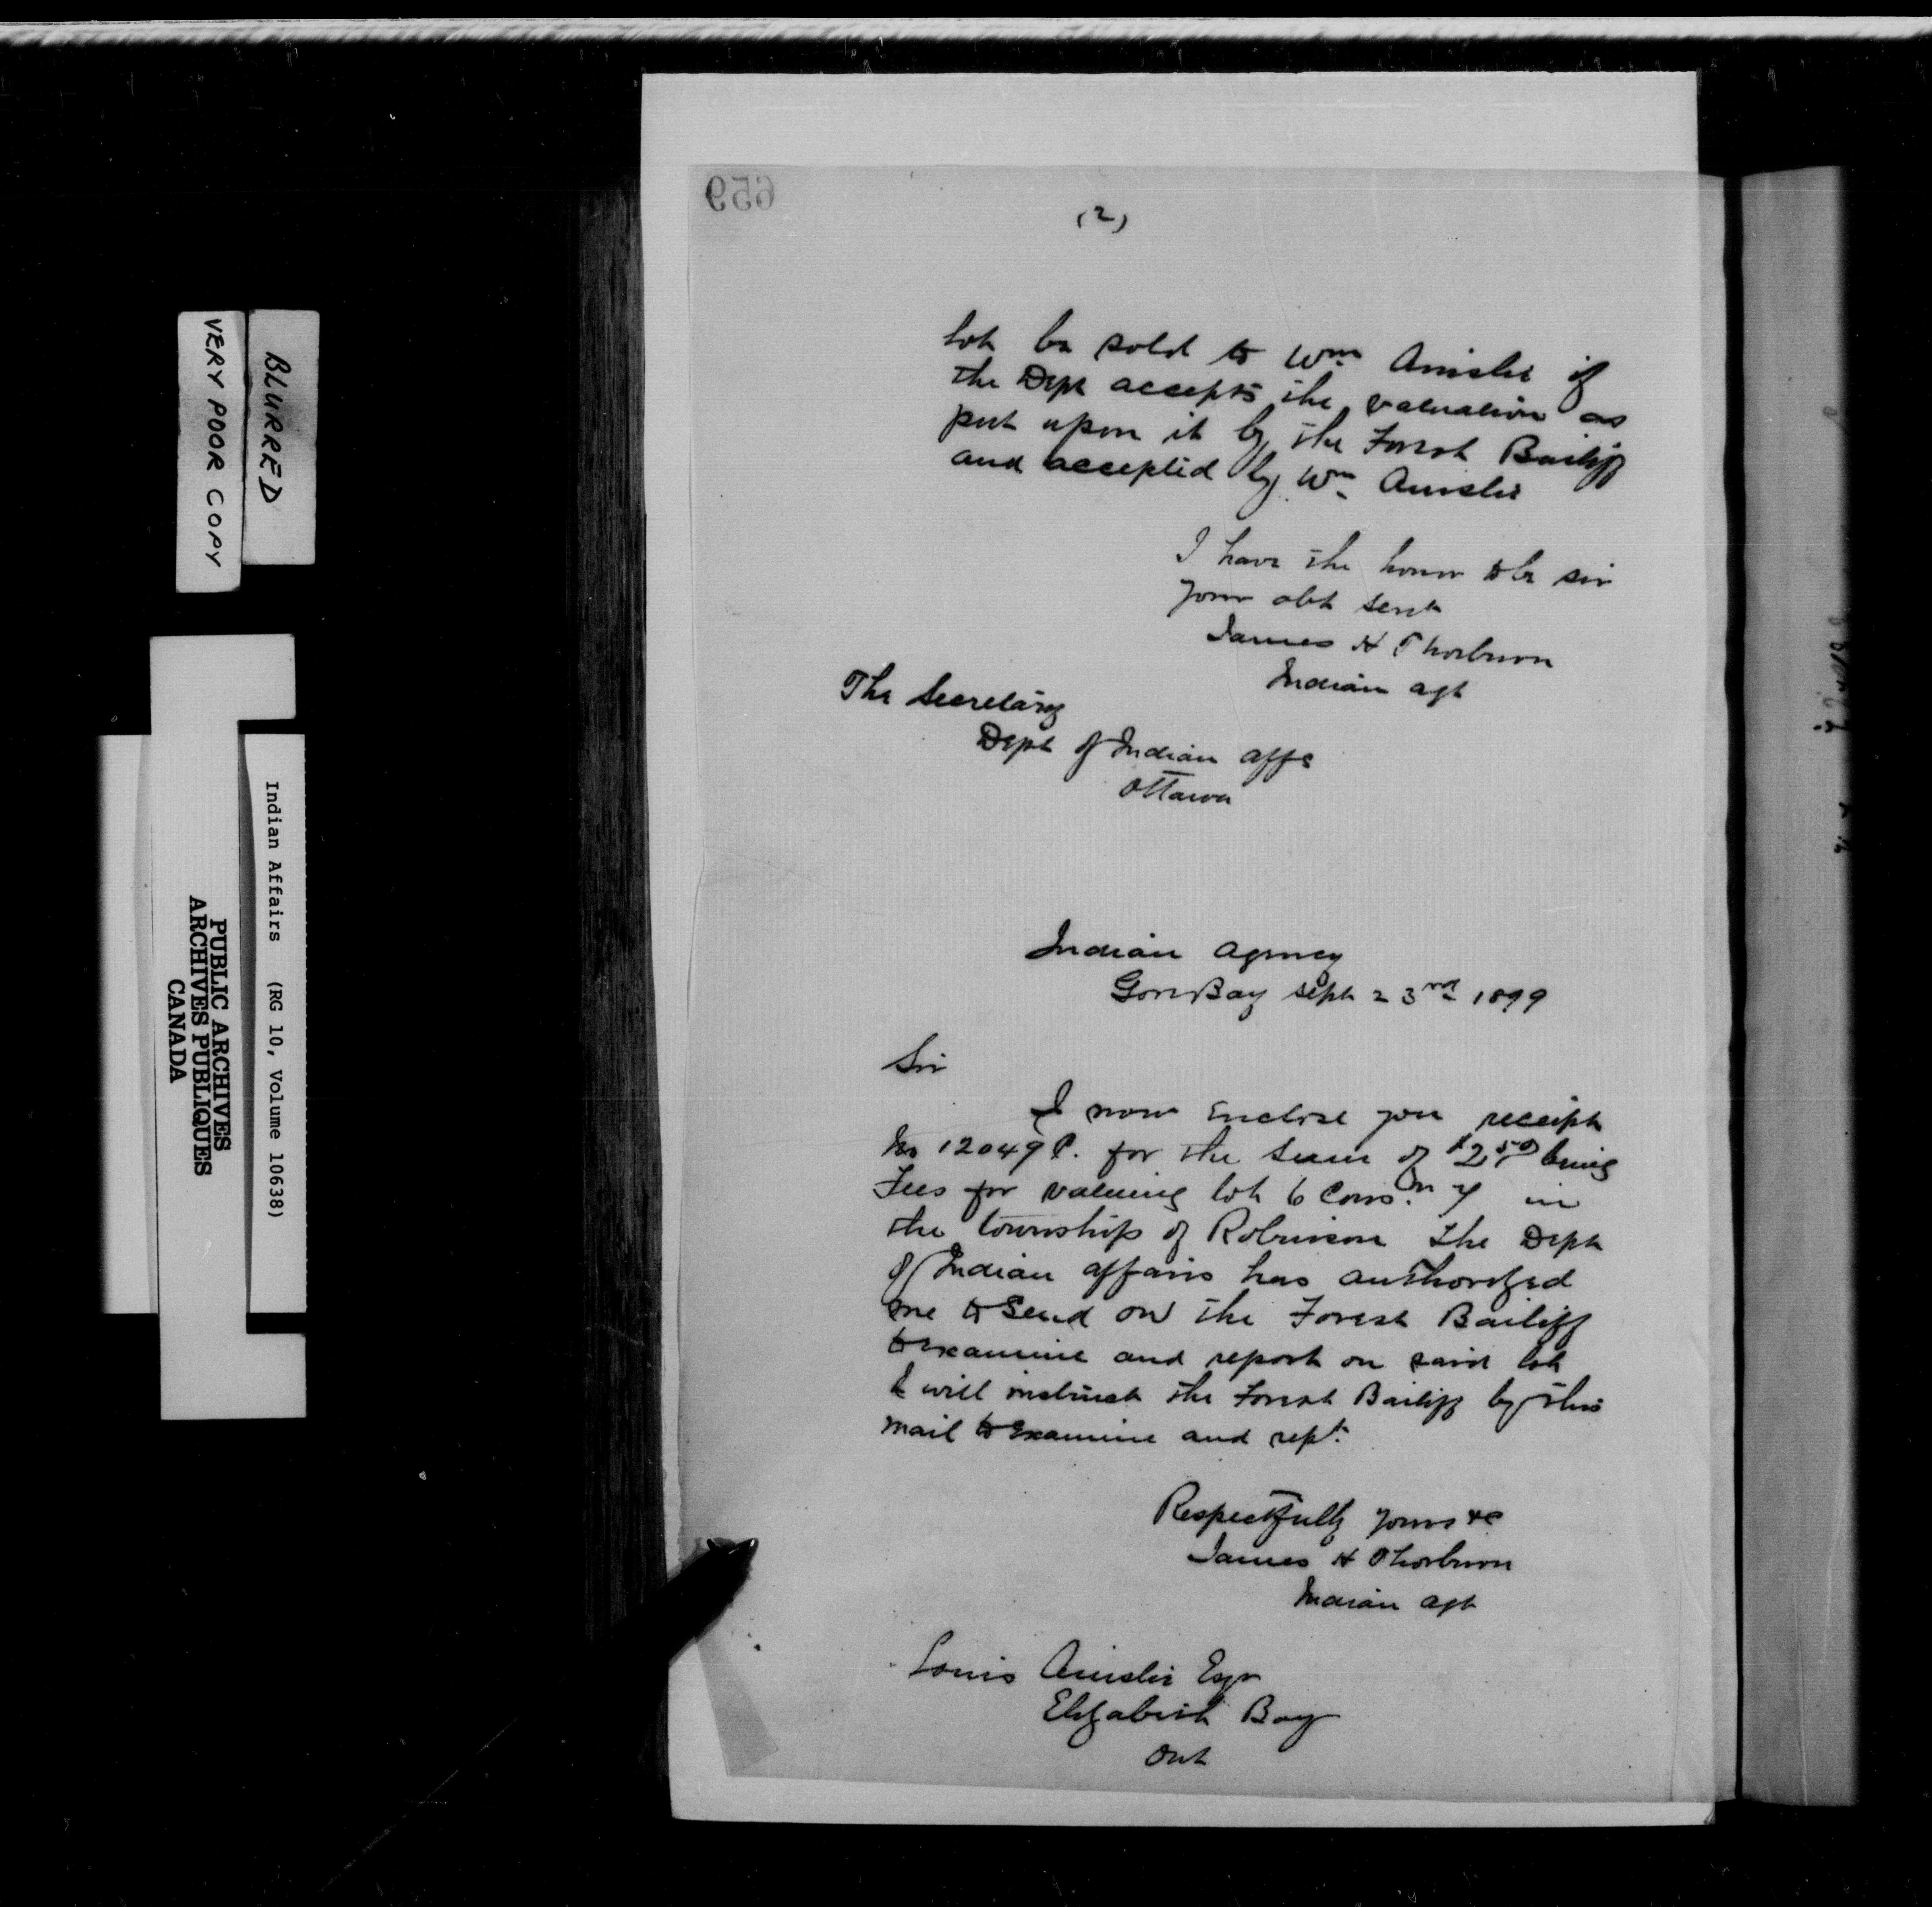 659
(2)
lot be sold to Wm Ainslie if
the Dept accepts the valuation as
put upon it by the Forest Bailiff
and accepted by Wm Ainslie
I have the honor to be sir
your obt servt
James H Thorburn
Indian agt
The Secretary
Dept of Indian affs
Ottawa
Indian Agency
Gore Bay Sept 23rd 1899
Sir
I now enclose you receipt
No 12049 P. for the sum of $2.50 being
Fees for valuing lot 6 Conson 7 in
the township of Robinson The Dept
of Indian affairs has authorized
me to send on the Forest Bailiff
to examine and report on said lot
I will instruct the Forest Bailiff by this
mail to Examine and rept.
Respectfully yours &c
James H Thorburn
Indian agt
Louis Ainslie Esqr
Elizabeth Bay
Ont
BLURRED
VERY POOR COPY
Indian Affairs (RG 10, Volume 10638)
PUBLIC ARCHIVES
ARCHIVES PUBLIQUES
CANADA